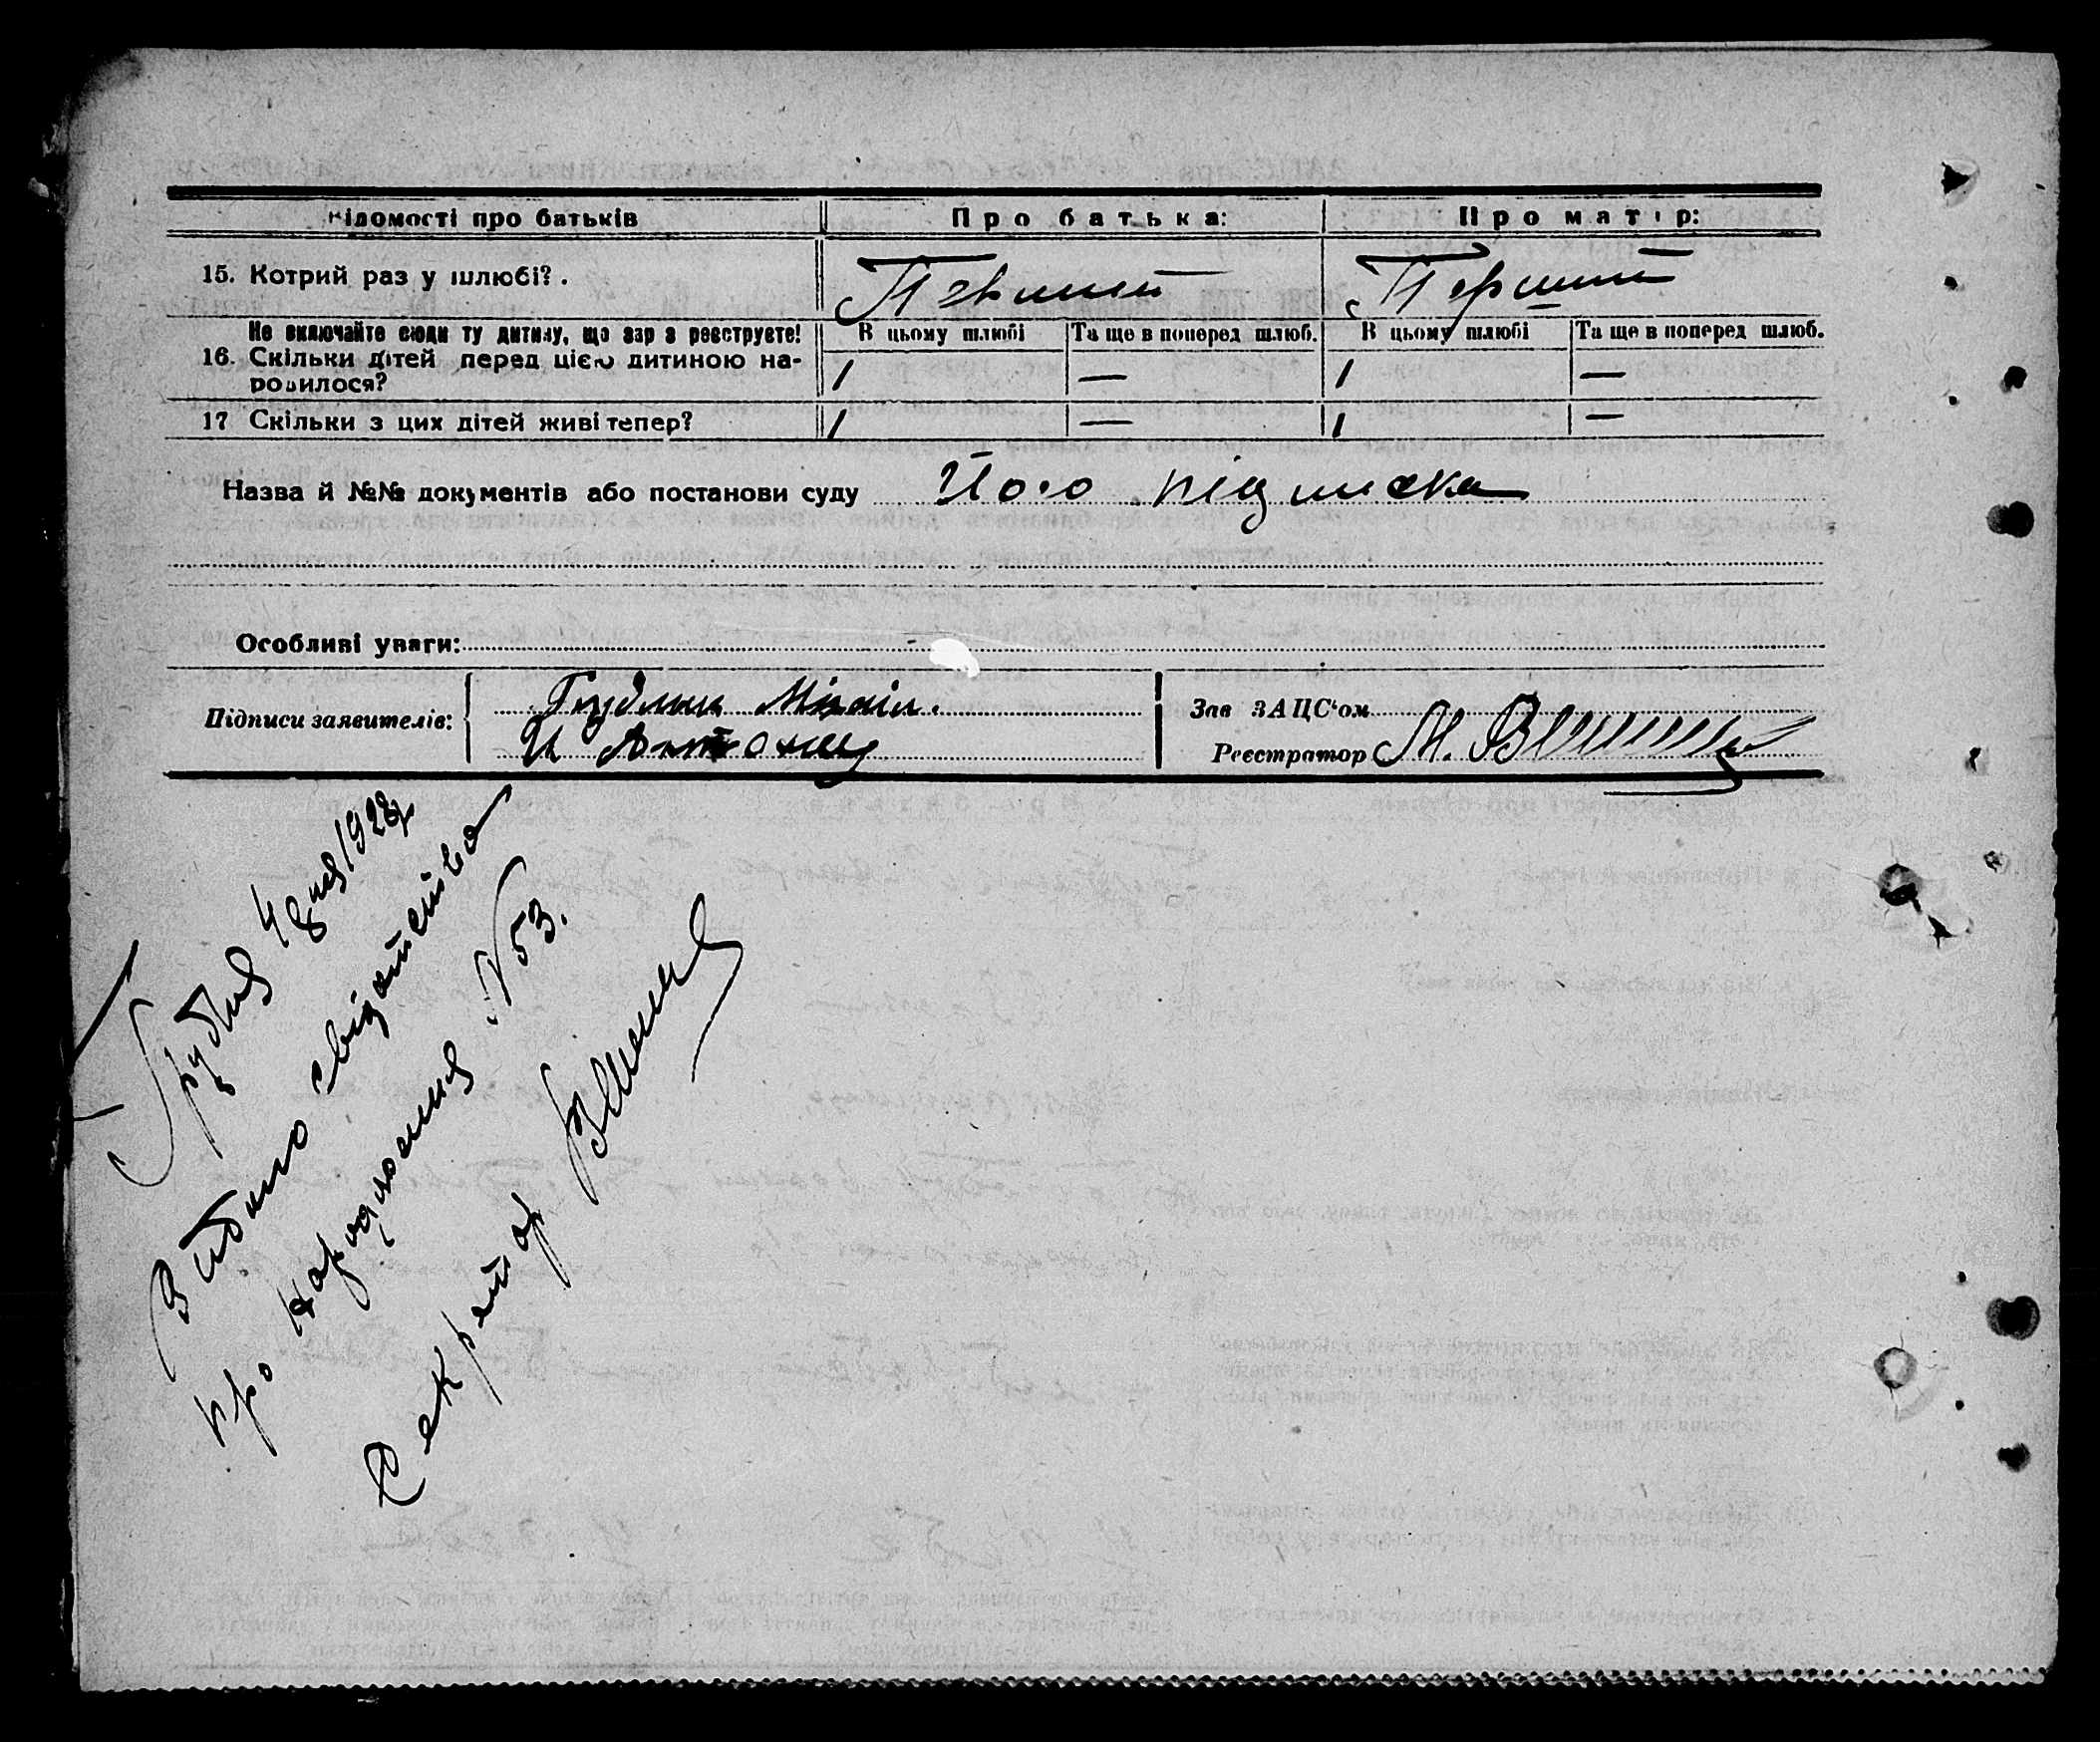 Відомості про батьків Про батька: Про матір:
15. Котрий раз у шлюбі? . Первший Перший
Не включайте сюди ту дитину, що зар з реєструєте! В цьому шлюбі Та ще в поперед шлюб. В цьому шлюбі Та ще в поперед шлюб.
16. Скільки дітей перед цією дитиною на-
родилося? 1 — 1 —
17 Скільки з цих дітей живі тепер? 1 — 1 —
Назва й №№ документів або постанови суду Його підписка
Особливі уваги:
Підписи заявителів: Міхаіл. Зав ЗАЦС'ом
И Антонец Реєстратор М.
Грудня 4 дня 1928
Видано свідотство
про народження N 53.
Секретар